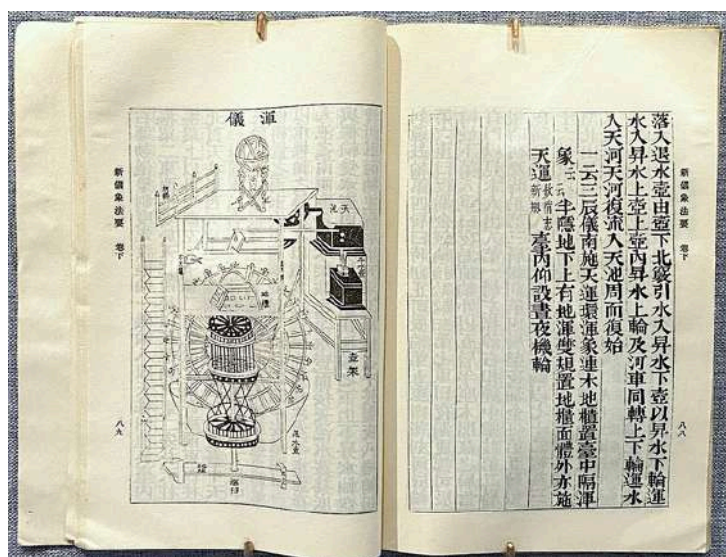 新儀象法要 卷下
八八
落入退水壺由壺下北竅引水入昇水下壺以昇水下輪運
水入昇水上壺上壺內昇水上輪及河車同轉上下輪運水
入天河天河復流入天池周而復始
一云三辰儀南施天運環渾象連木地櫃置臺中隔渾
象云云半隱地下上有地渾雙規置地櫃面體外亦施
天運 臺內仰設晝夜機輪
渾儀
天池
壺架
地櫃
樞臼
新儀象法要 卷下
八九